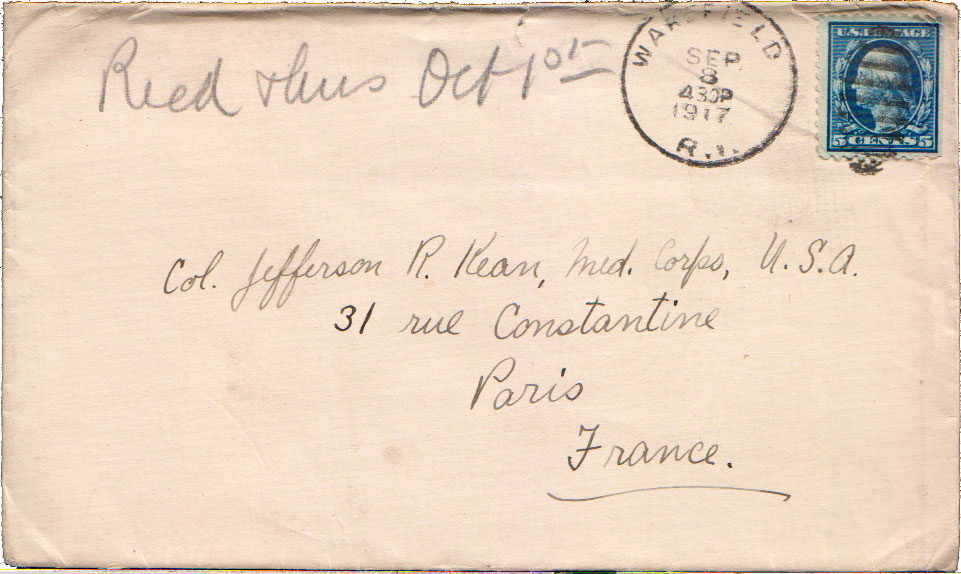 Recd Oct 1st
WAKEFIELD
SEP
8
430P
1917
R.I.
U.S. POSTAGE
5 CENTS 5
Col. Jefferson R. Kean, Med. Corps, U.S.A.
31 rue Constantine
Paris
France.